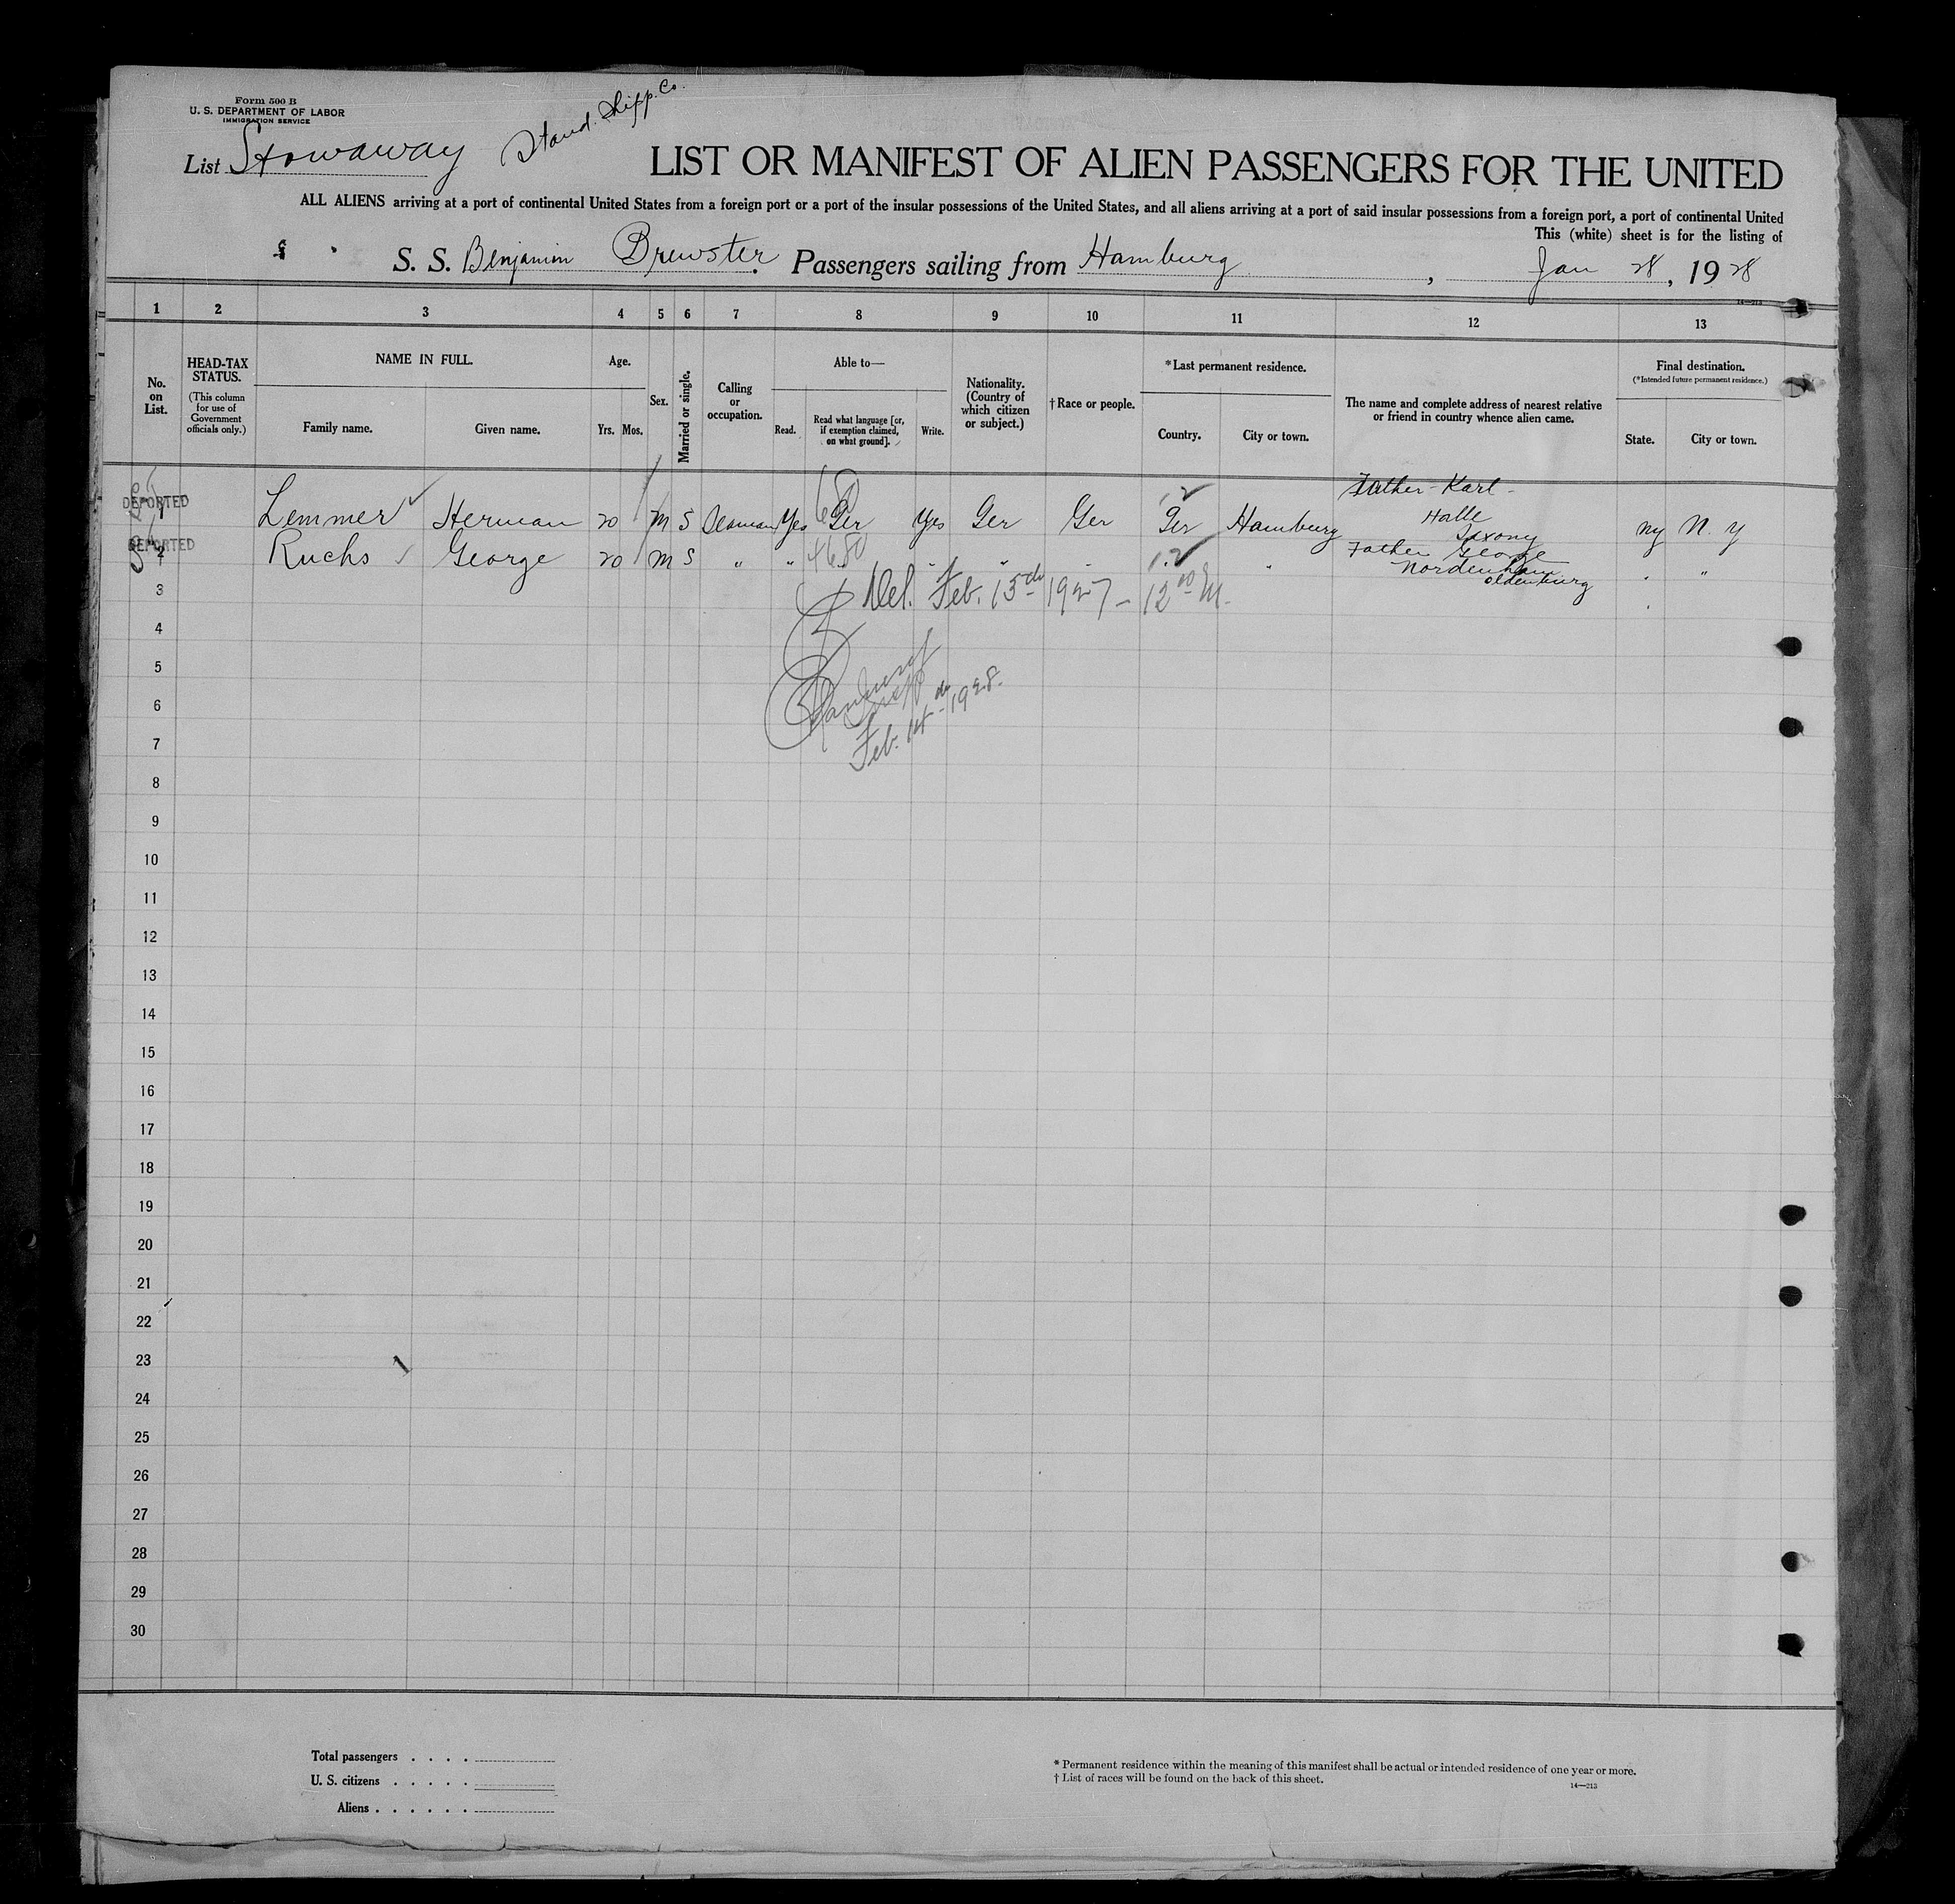 Form 500 B
U. S. DEPARTMENT OF LABOR
IMMIGRATION SERVICE
Stand. Shipp. Co.
List Stowaway
LIST OR MANIFEST OF ALIEN PASSENGERS FOR THE UNITED
ALL ALIENS arriving at a port of continental United States from a foreign port or a port of the insular possessions of the United States, and all aliens arriving at a port of said insular possessions from a foreign port, a port of continental United
This (white) sheet is for the listing of
S. S. Benjamin Brewster. Passengers sailing from Hamburg, Jan 28, 1928
14—213
1 2 3 4 5 6 7 8 9 10 11 12 13
No. on List.
HEAD-TAX STATUS.
(This column for use of Government officials only.)
NAME IN FULL.
Family name. Given name.
Age.
Yrs. Mos.
Sex.
Married or single.
Calling or occupation.
Able to—
Read. Read what language [or, if exemption claimed, on what ground]. Write.
Nationality. (Country of which citizen or subject.)
† Race or people.
*Last permanent residence.
Country. City or town.
The name and complete address of nearest relative or friend in country whence alien came.
Final destination.
(*Intended future permanent residence.)
State. City or town.
DEPORTED
1 Lemmer Herman 20 M S Seaman Yes Ger Yes Ger Ger Ger Hamburg Father - Karl - Halle Saxony NY N. Y
DEPORTED
2 Ruchs George 20 M S " " " " " " " " Father George Nordenham Oldenburg " "
4680
3 Del. Feb. 13th 1927 - 12 00 M.
4
5
6
Feb. 14th 1928.
7
8
9
10
11
12
13
14
15
16
17
18
19
20
21
22
23
24
25
26
27
28
29
30
Total passengers . . . .
U. S. citizens . . . . .
Aliens . . . . . .
* Permanent residence within the meaning of this manifest shall be actual or intended residence of one year or more.
† List of races will be found on the back of this sheet.
14—213